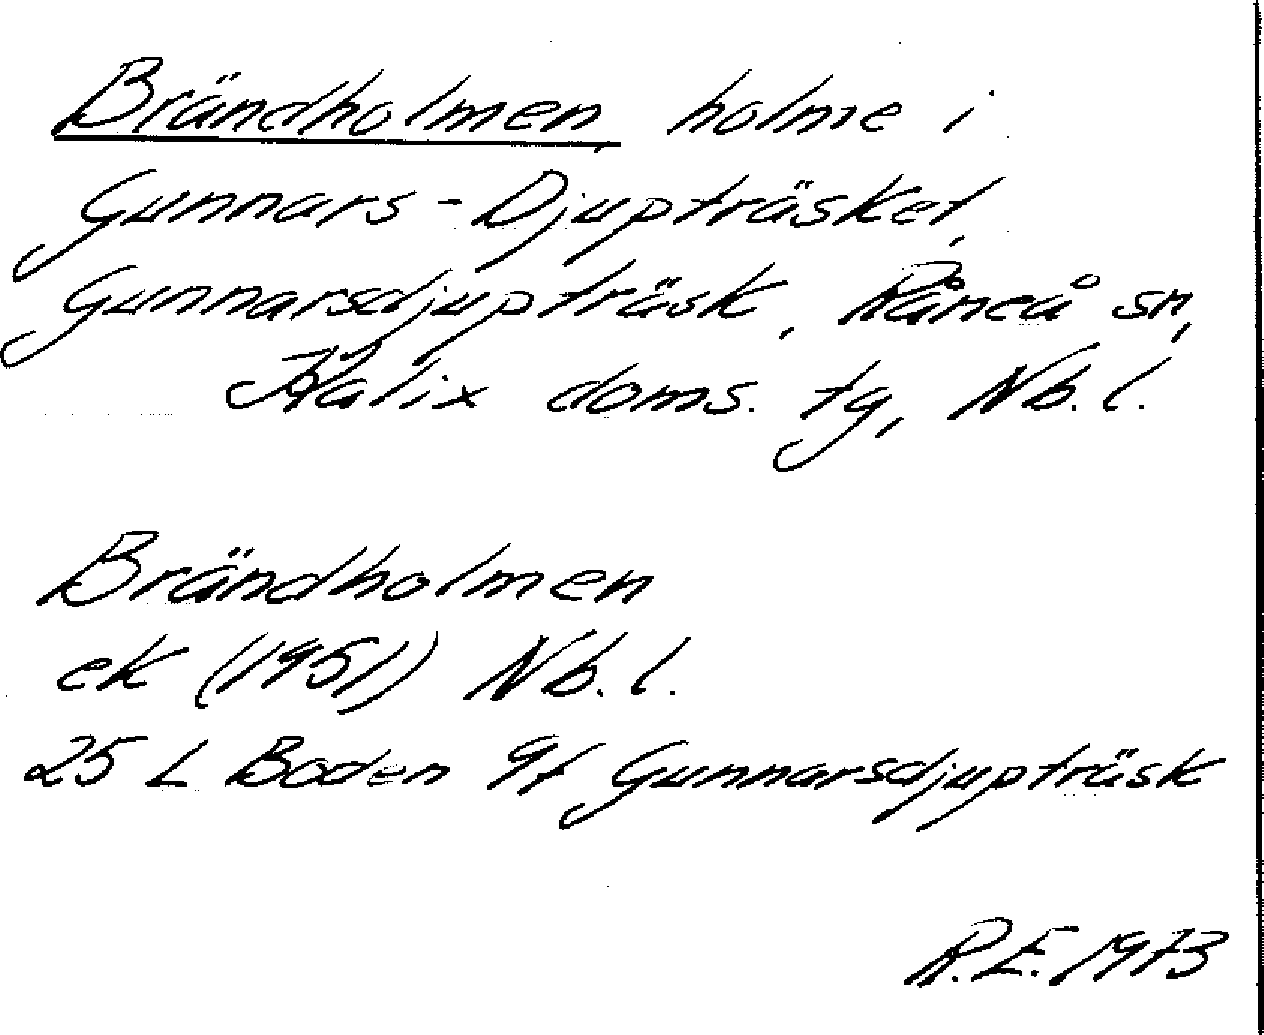 Brändholmen, holme i
Gunnars-Djupträsket,
Gunnarsdjupträsk, Råneå sn,
Kalix doms. tg, Nb. l.
Brändholmen
ek (1951) Nb. l.
25 L Boden 9f Gunnarsdjupträsk
R.E. 1973